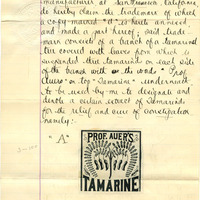 manufacturers at San Francisco California,
do hereby claim the trademark of which
a copy marked "A" is hereto annexed
and made a part hereof; said trade-
mark consists of a branch of a tamarind
tree covered with leaves from which is
suspended the tamarind on each side
of the branch with the words "Prof
Auers" on top "Tamarine" underneath
to be used by me to designate and
denote a certain extract of Tamarinds
for the relief and cure of constipation
namely:-
"A"
PROF. AUER'S
TAMARINE